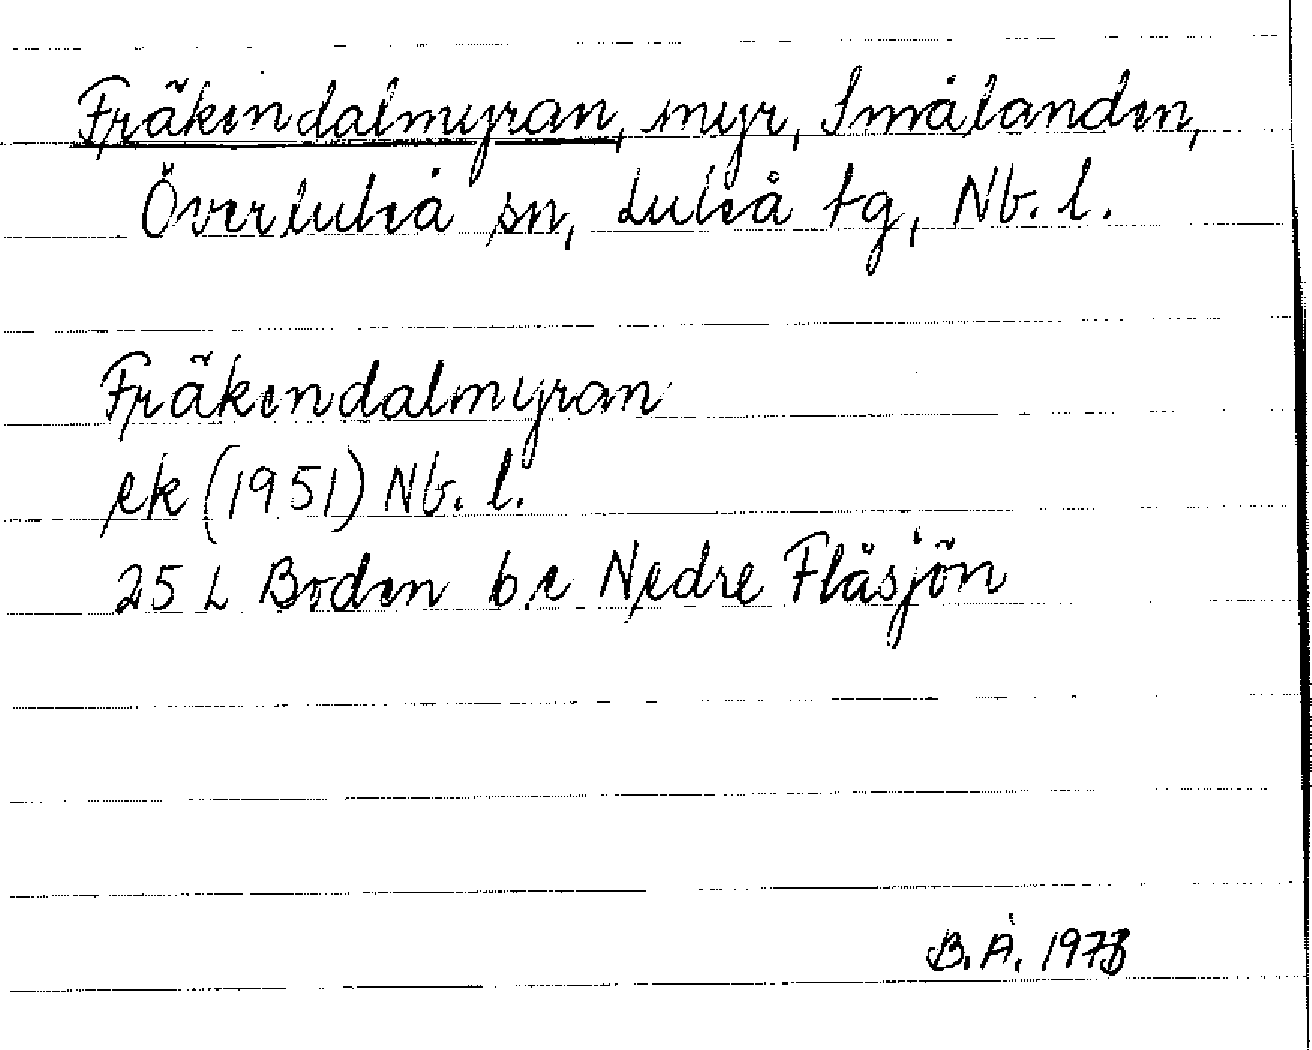 Fräkendalmyran, myr, Smålanden,
Överluleå sn, Luleå tg, Nb. l.
Fräkendalmyran
ek (1951) Nb. l.
25 L Boden b.e Nedre Flåsjön
B.Å. 1978